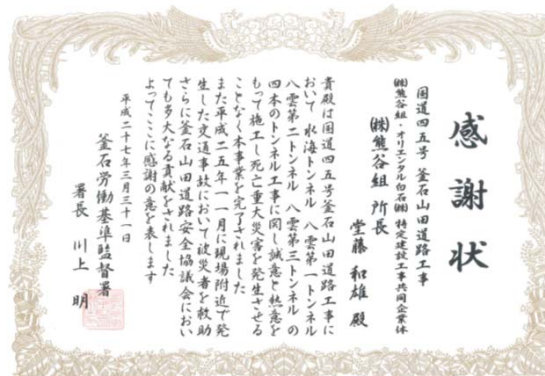 感謝状
国道四五号 釜石山田道路工事
㈱熊谷組・オリエンタル白石㈱ 特定建設工事共同企業体
㈱熊谷組 所長
堂藤 和雄 殿
貴殿は国道四五号釜石山田道路工事に
おいて 水海トンネル 八雲第一トンネル
八雲第二トンネル 八雲第三トンネル の
四本のトンネル工事に関し誠意と熱意を
もって施工し死亡重大災害を発生させる
ことなく本事業を完了されました
また平成二五年一一月に現場附近で発
生した交通事故において被災者を救助
さらに釜石山田道路安全協議会におい
ても多大なる貢献をされました
よってここに感謝の意を表します
平成二十七年三月三十一日
釜石労働基準監督署
署長 川上 明